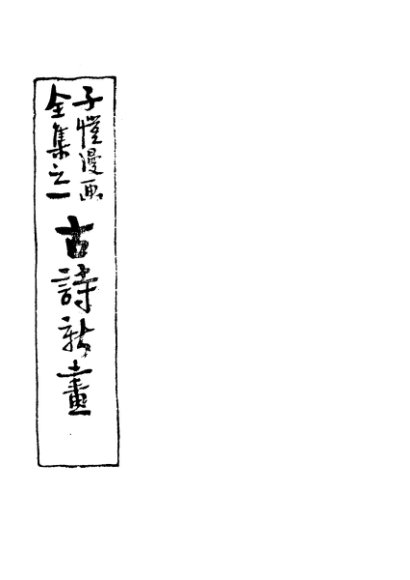 子愷漫画
全集之一
古詩新畫